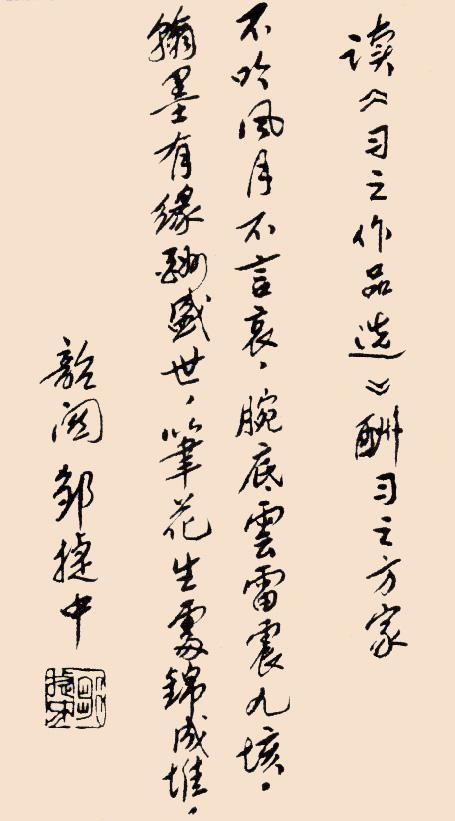 读《习之作品选》酬习之方家
不吟风月不言哀，腕底雲雷震九垓。
翰墨有缘酬盛世，筆花生處錦成堆。
韶関 鄒捷中